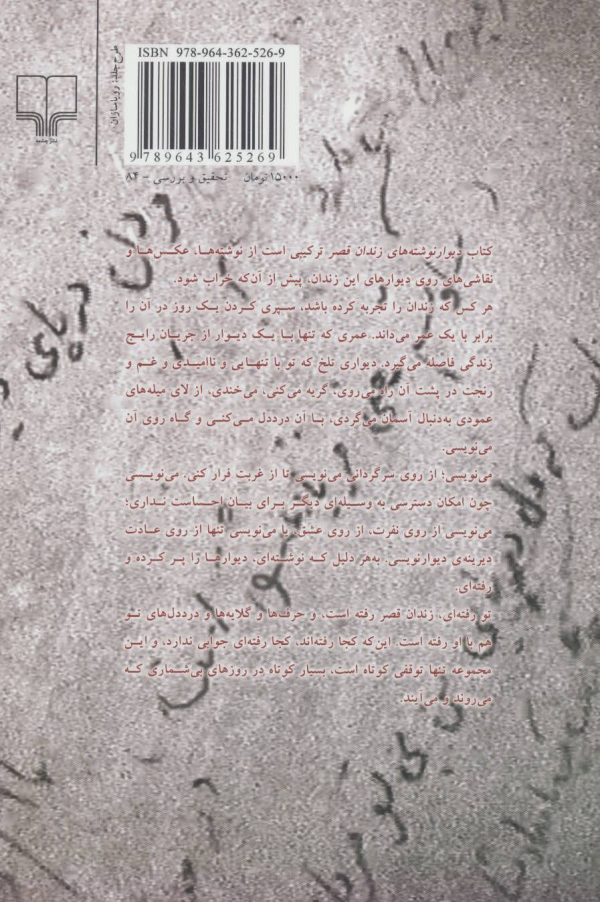 ISBN 978-964-362-526-9
9 789643 625269
۱۵۰۰۰ تومان تحقیق و بررسی – ۸۴
طرح جلد: رویا سازان
نشر چشمه
کتاب دیوارنوشته‌های زندان قصر ترکیبی است از نوشته‌ها، عکس‌ها و
نقاشی‌های روی دیوارهای این زندان، پیش از آن‌که خراب شود.
هر کس که زندان را تجربه کرده باشد، سپری کردن یک روز در آن را
برابر با یک عمر می‌داند. عمری که تنها با یک دیوار از جریان رایج
زندگی فاصله می‌گیرد. دیواری تلخ که تو با تنهایی و ناامیدی و غم و
رنجت در پشت آن راه می‌روی، گریه می‌کنی، می‌خندی، از لای میله‌های
عمودی به‌دنبال آسمان می‌گردی، با آن درددل می‌کنی و گاه روی آن
می‌نویسی.
می‌نویسی؛ از روی سرگردانی می‌نویسی تا از غربت فرار کنی. می‌نویسی
چون امکان دسترسی به وسیله‌ای دیگر برای بیان احساست نداری؛
می‌نویسی از روی نفرت، از روی عشق. یا می‌نویسی تنها از روی عادت
دیرینه‌ی دیوارنویسی. به‌هر دلیل که نوشته‌ای، دیوارها را پر کرده و
رفته‌ای.
تو رفته‌ای، زندان قصر رفته است، و حرف‌ها و گلایه‌ها و درددل‌های تو
هم با او رفته است. این‌که کجا رفته‌اند، کجا رفته‌ای جوابی ندارد، و این
مجموعه تنها توقفی کوتاه است، بسیار کوتاه در روزهای بی‌شماری که
می‌روند و می‌آیند.